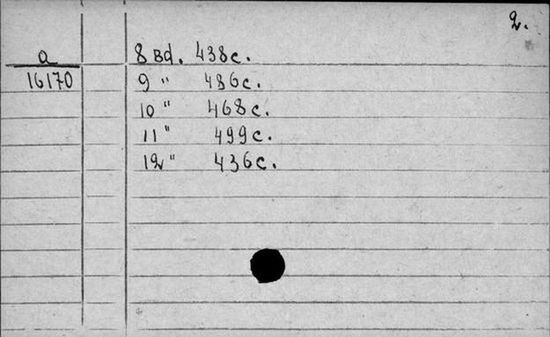 2.
a
16170
8 Bd. 438c.
9 " 486c.
10 " 468c.
11 " 499c.
12 " 436c.